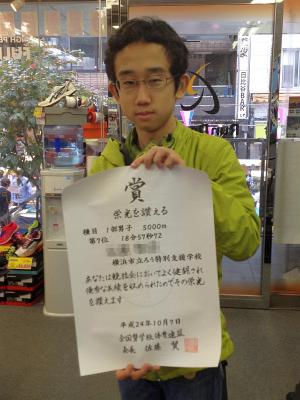 賞
栄光を讃える
種目 1部男子 5000m
第7位 18分57秒72
横浜市立ろう特別支援学校
あなたは競技会においてよく健闘され
優秀な成績を収められたのでその栄光
を讃えます
平成24年10月7日
全国聾学校体育連盟
会長 佐藤 賢
日比谷BAR